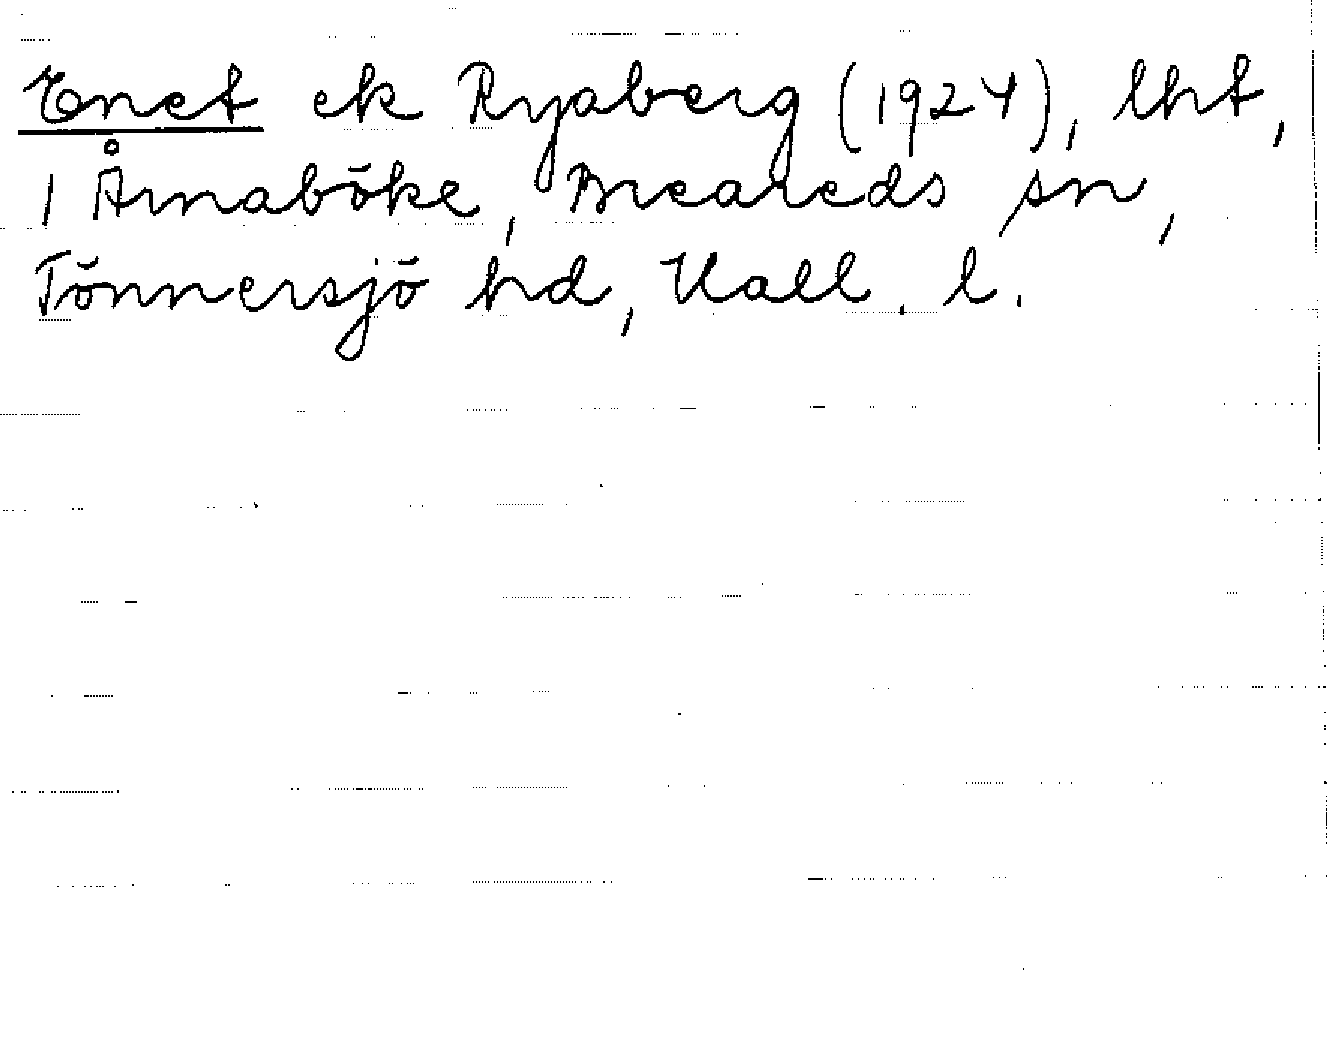 Enet ek Ryaberg (1924), lht,
1 Årnaböke, Breareds sn,
Tönnersjö hd, Hall. l.